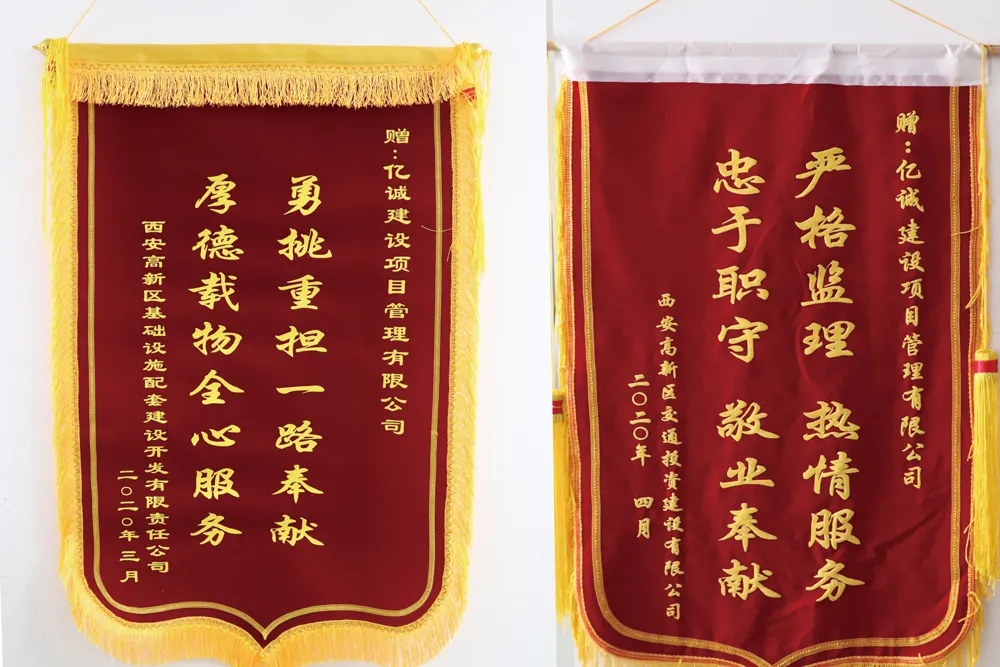 赠：亿诚建设项目管理有限公司
勇挑重担一路奉献
厚德载物全心服务
西安高新区基础设施配套建设开发有限责任公司
二〇二〇年三月
赠：亿诚建设项目管理有限公司
严格监理 热情服务
忠于职守 敬业奉献
西安高新区交通投资建设有限公司
二〇二〇年 四月